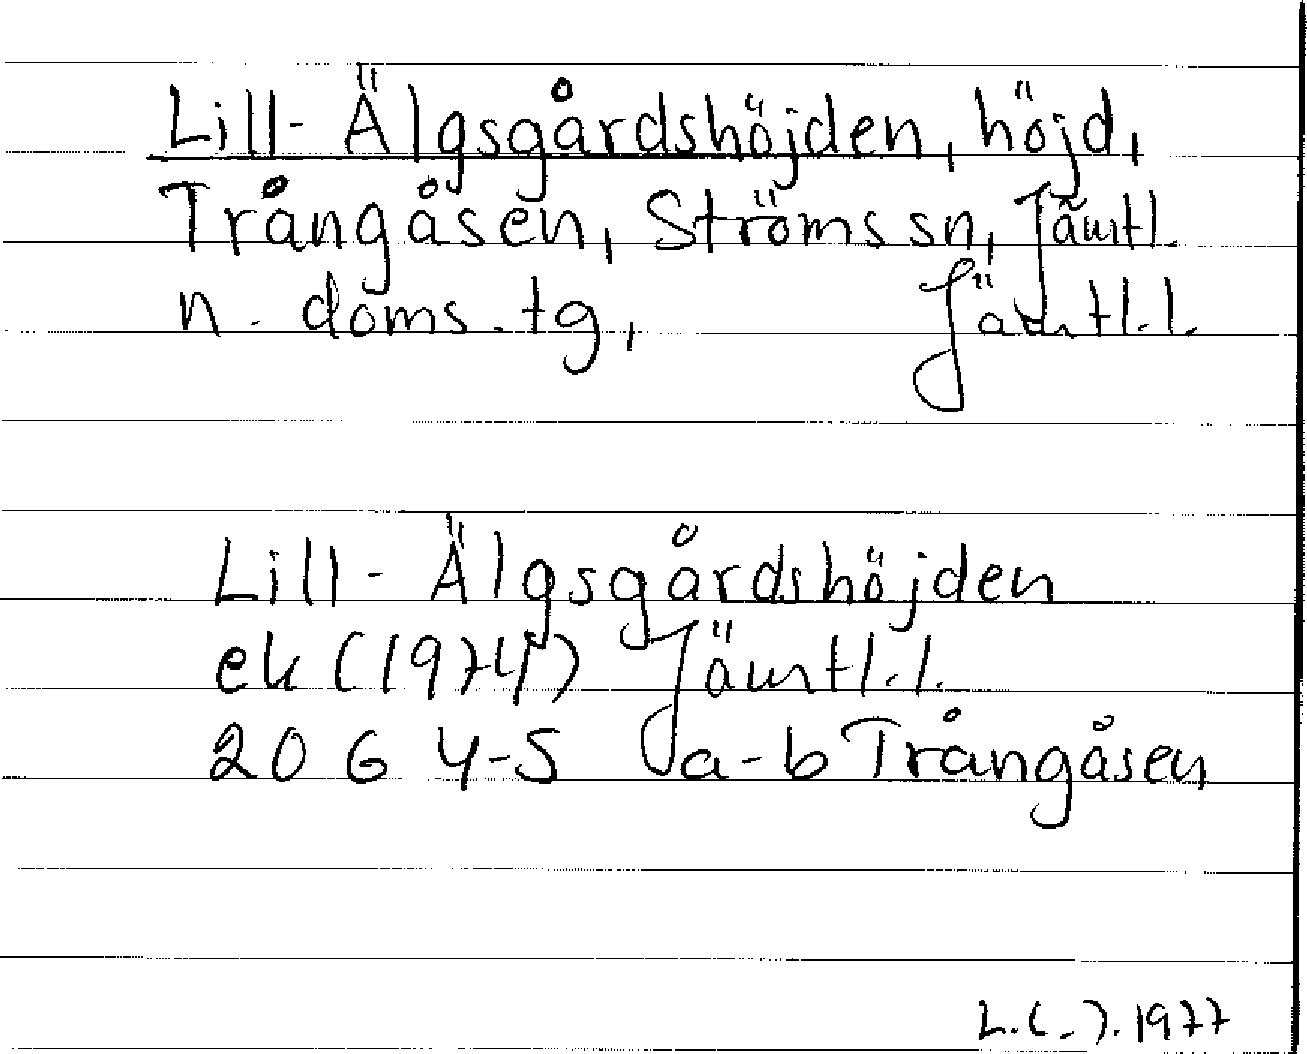 Lill-Älgsgårdshöjden, höjd,
Trångåsen, Ströms sn, Jämtl.
n. doms. tg, Jämtl. l.
Lill-Älgsgårdshöjden
ek (1974) Jämtl. l.
20 G 4-5 a-b Trångåsen
L. (-). 1977